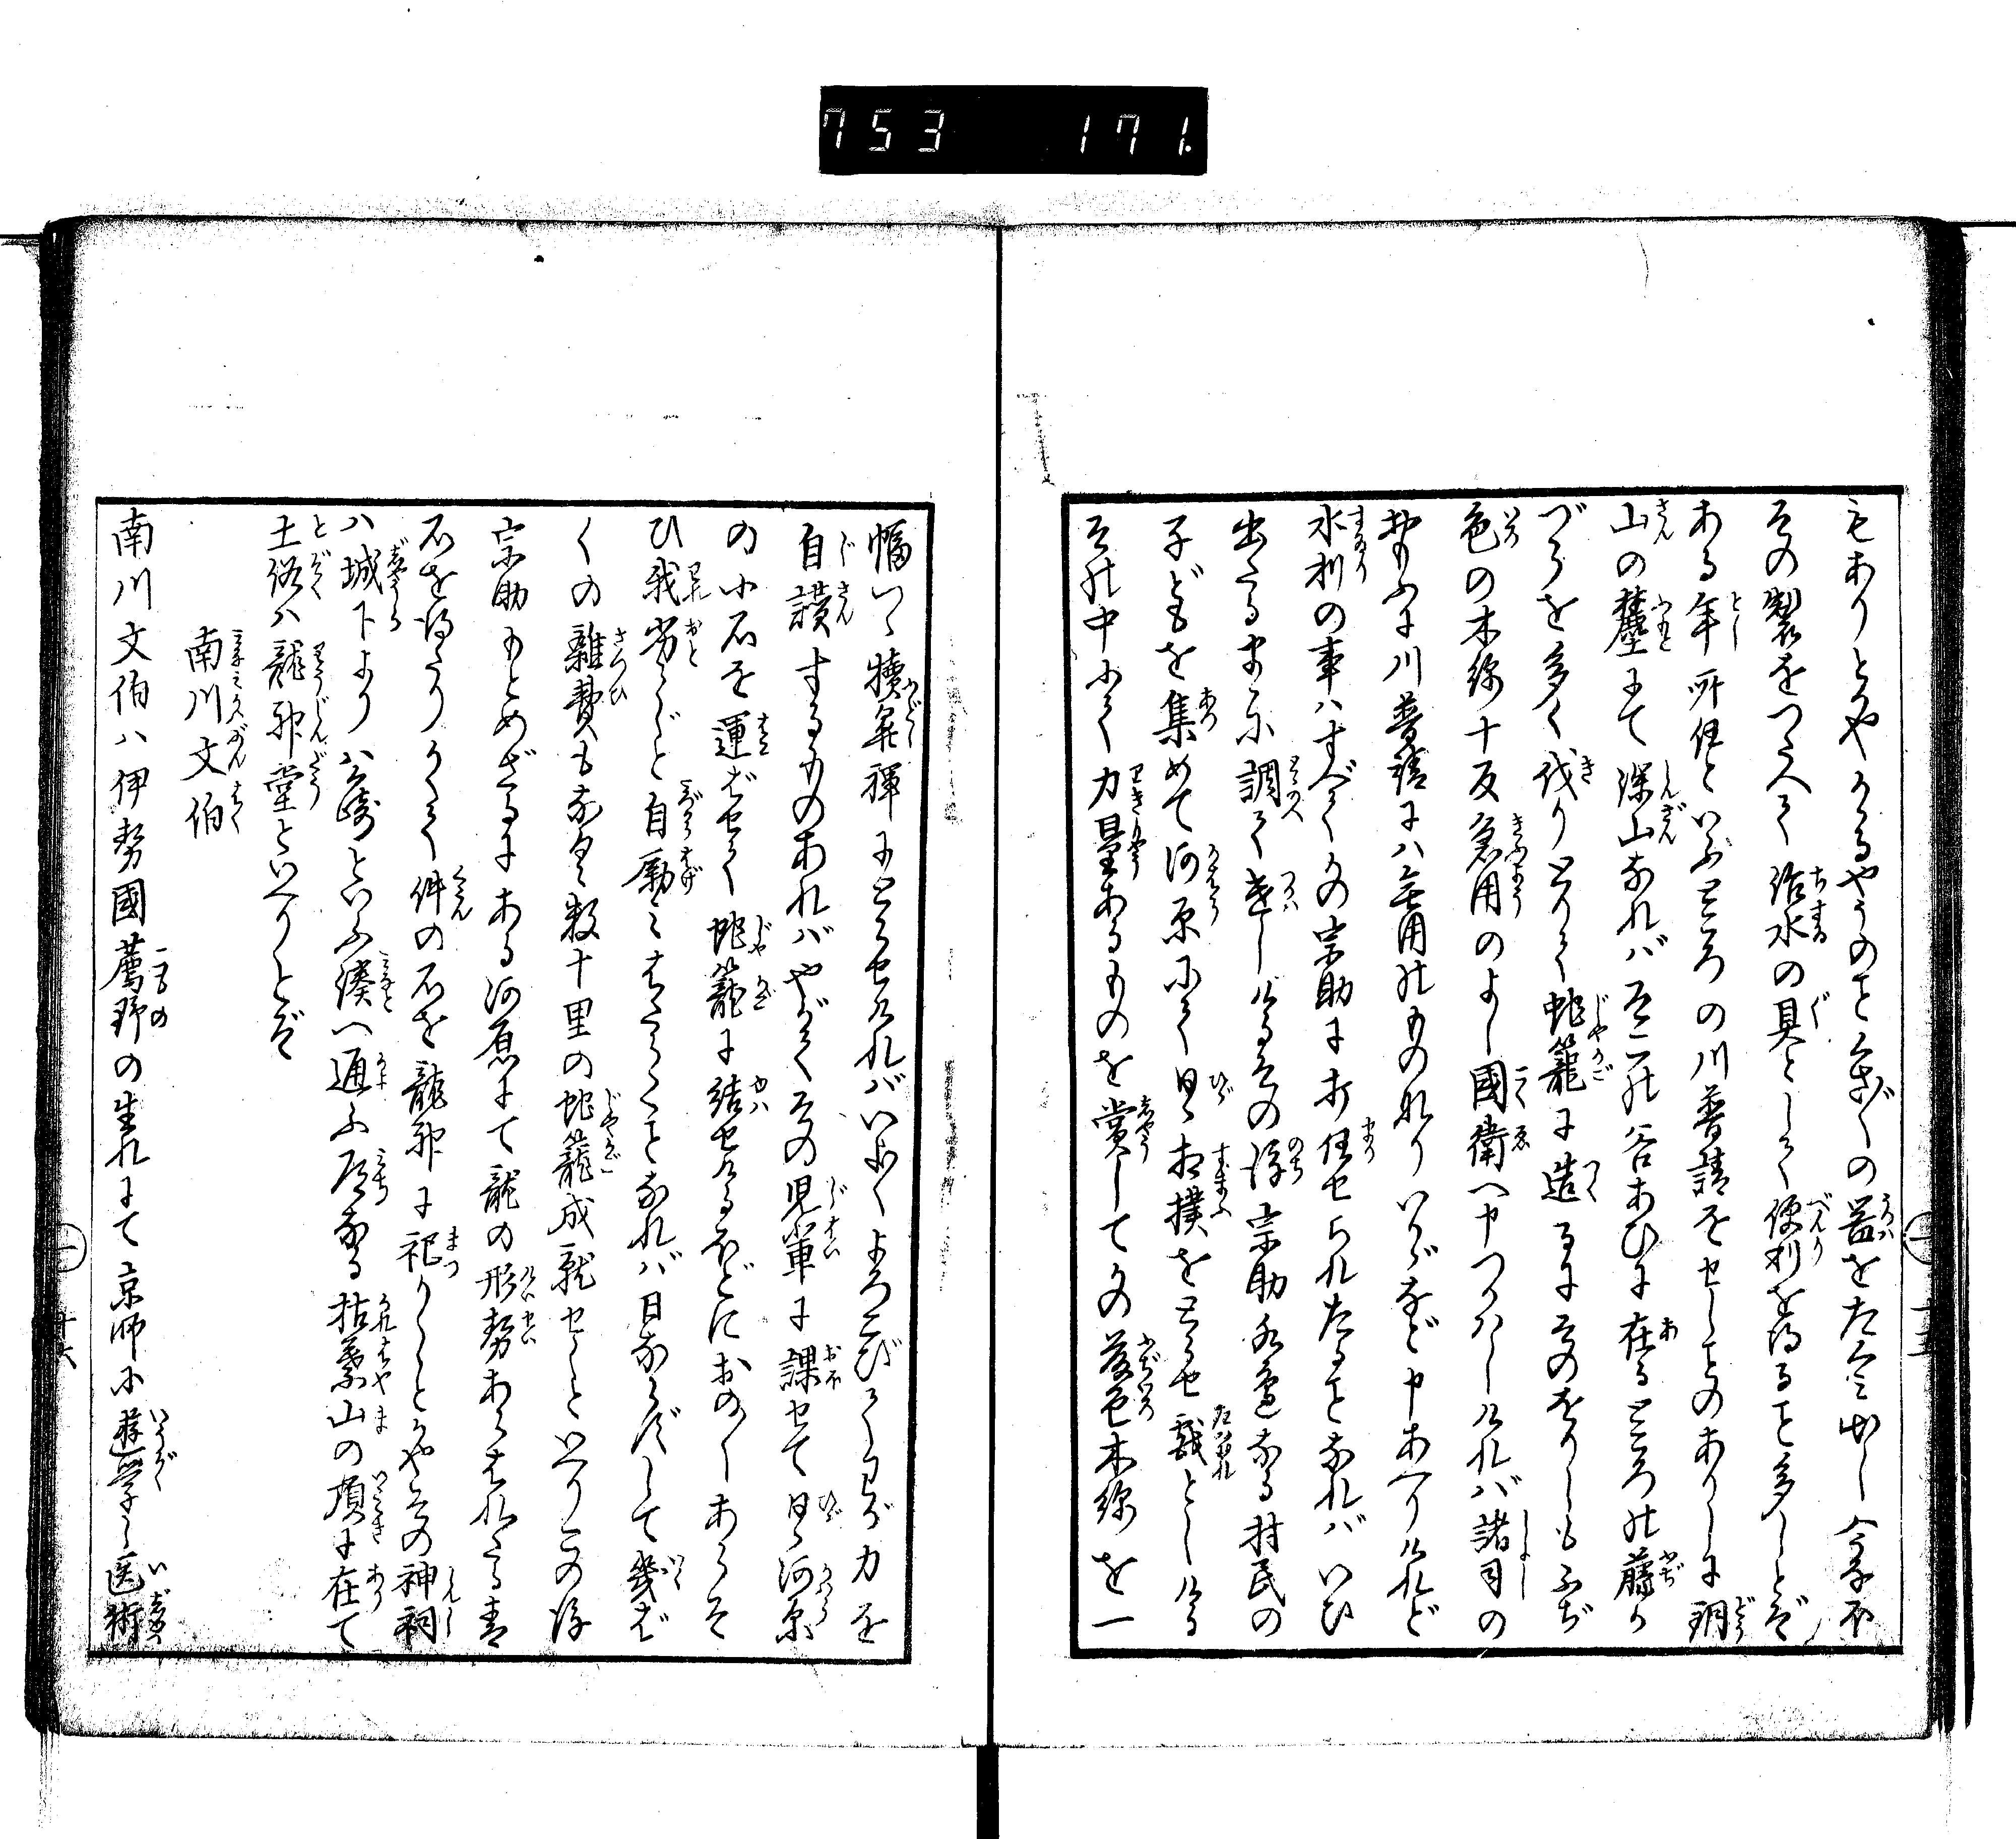 753 171
もありとかやかゝるやうのことくさ〴〵の器をたくみ出し今なほ
その製をつたへて治水の具として便利を得ること多しとぞ
ある年所住といふところの川普請をせしことのありしに朝
山の麓にて深山なればそこの谷あひに在るところの藤か
づらを多く伐りとりて蛇籠に造るにそのをりしもふぢ
色の木綿十反急用のよし國衛へ申つかはしければ諸司の
おもふに川普請には無用のものなりいかゞなど申あへりけれど
水利の事はすべてかの宗助に打任せられたることなればいひ
出たるまゝに調てつかはしけるその後宗助水邊なる村民の
子どもを集めて河原にて日々相撲をとらせ戯としける
その中にて力量あるものを賞してかの藤色木綿を一
幅づゝ犢鼻褌にとらせければいよ〳〵よろこびてわが力を
自讃するものあればやがてその児輩に課せて日々河原
の小石を運ばせて蛇籠に結せけるほどにおの〳〵あらそ
ひ我劣らじと自勵てはたらくことなれば日ならずして幾ば
くの雑費もなくて数十里の蛇籠成就せしといへりこの後
宗助もとめざるにある河原にて龍の形勢あらはれたる青
石を得たりかくて件の石を龍神に祀りしとかやその神祠
ハ城下より公崎といふ湊へ通ふ道なる枯葉山の頂に在て
土俗ハ龍神堂といへりとぞ
南川文伯
南川文伯ハ伊勢國薦野の生れにて京師に遊學し医術
十五
十六